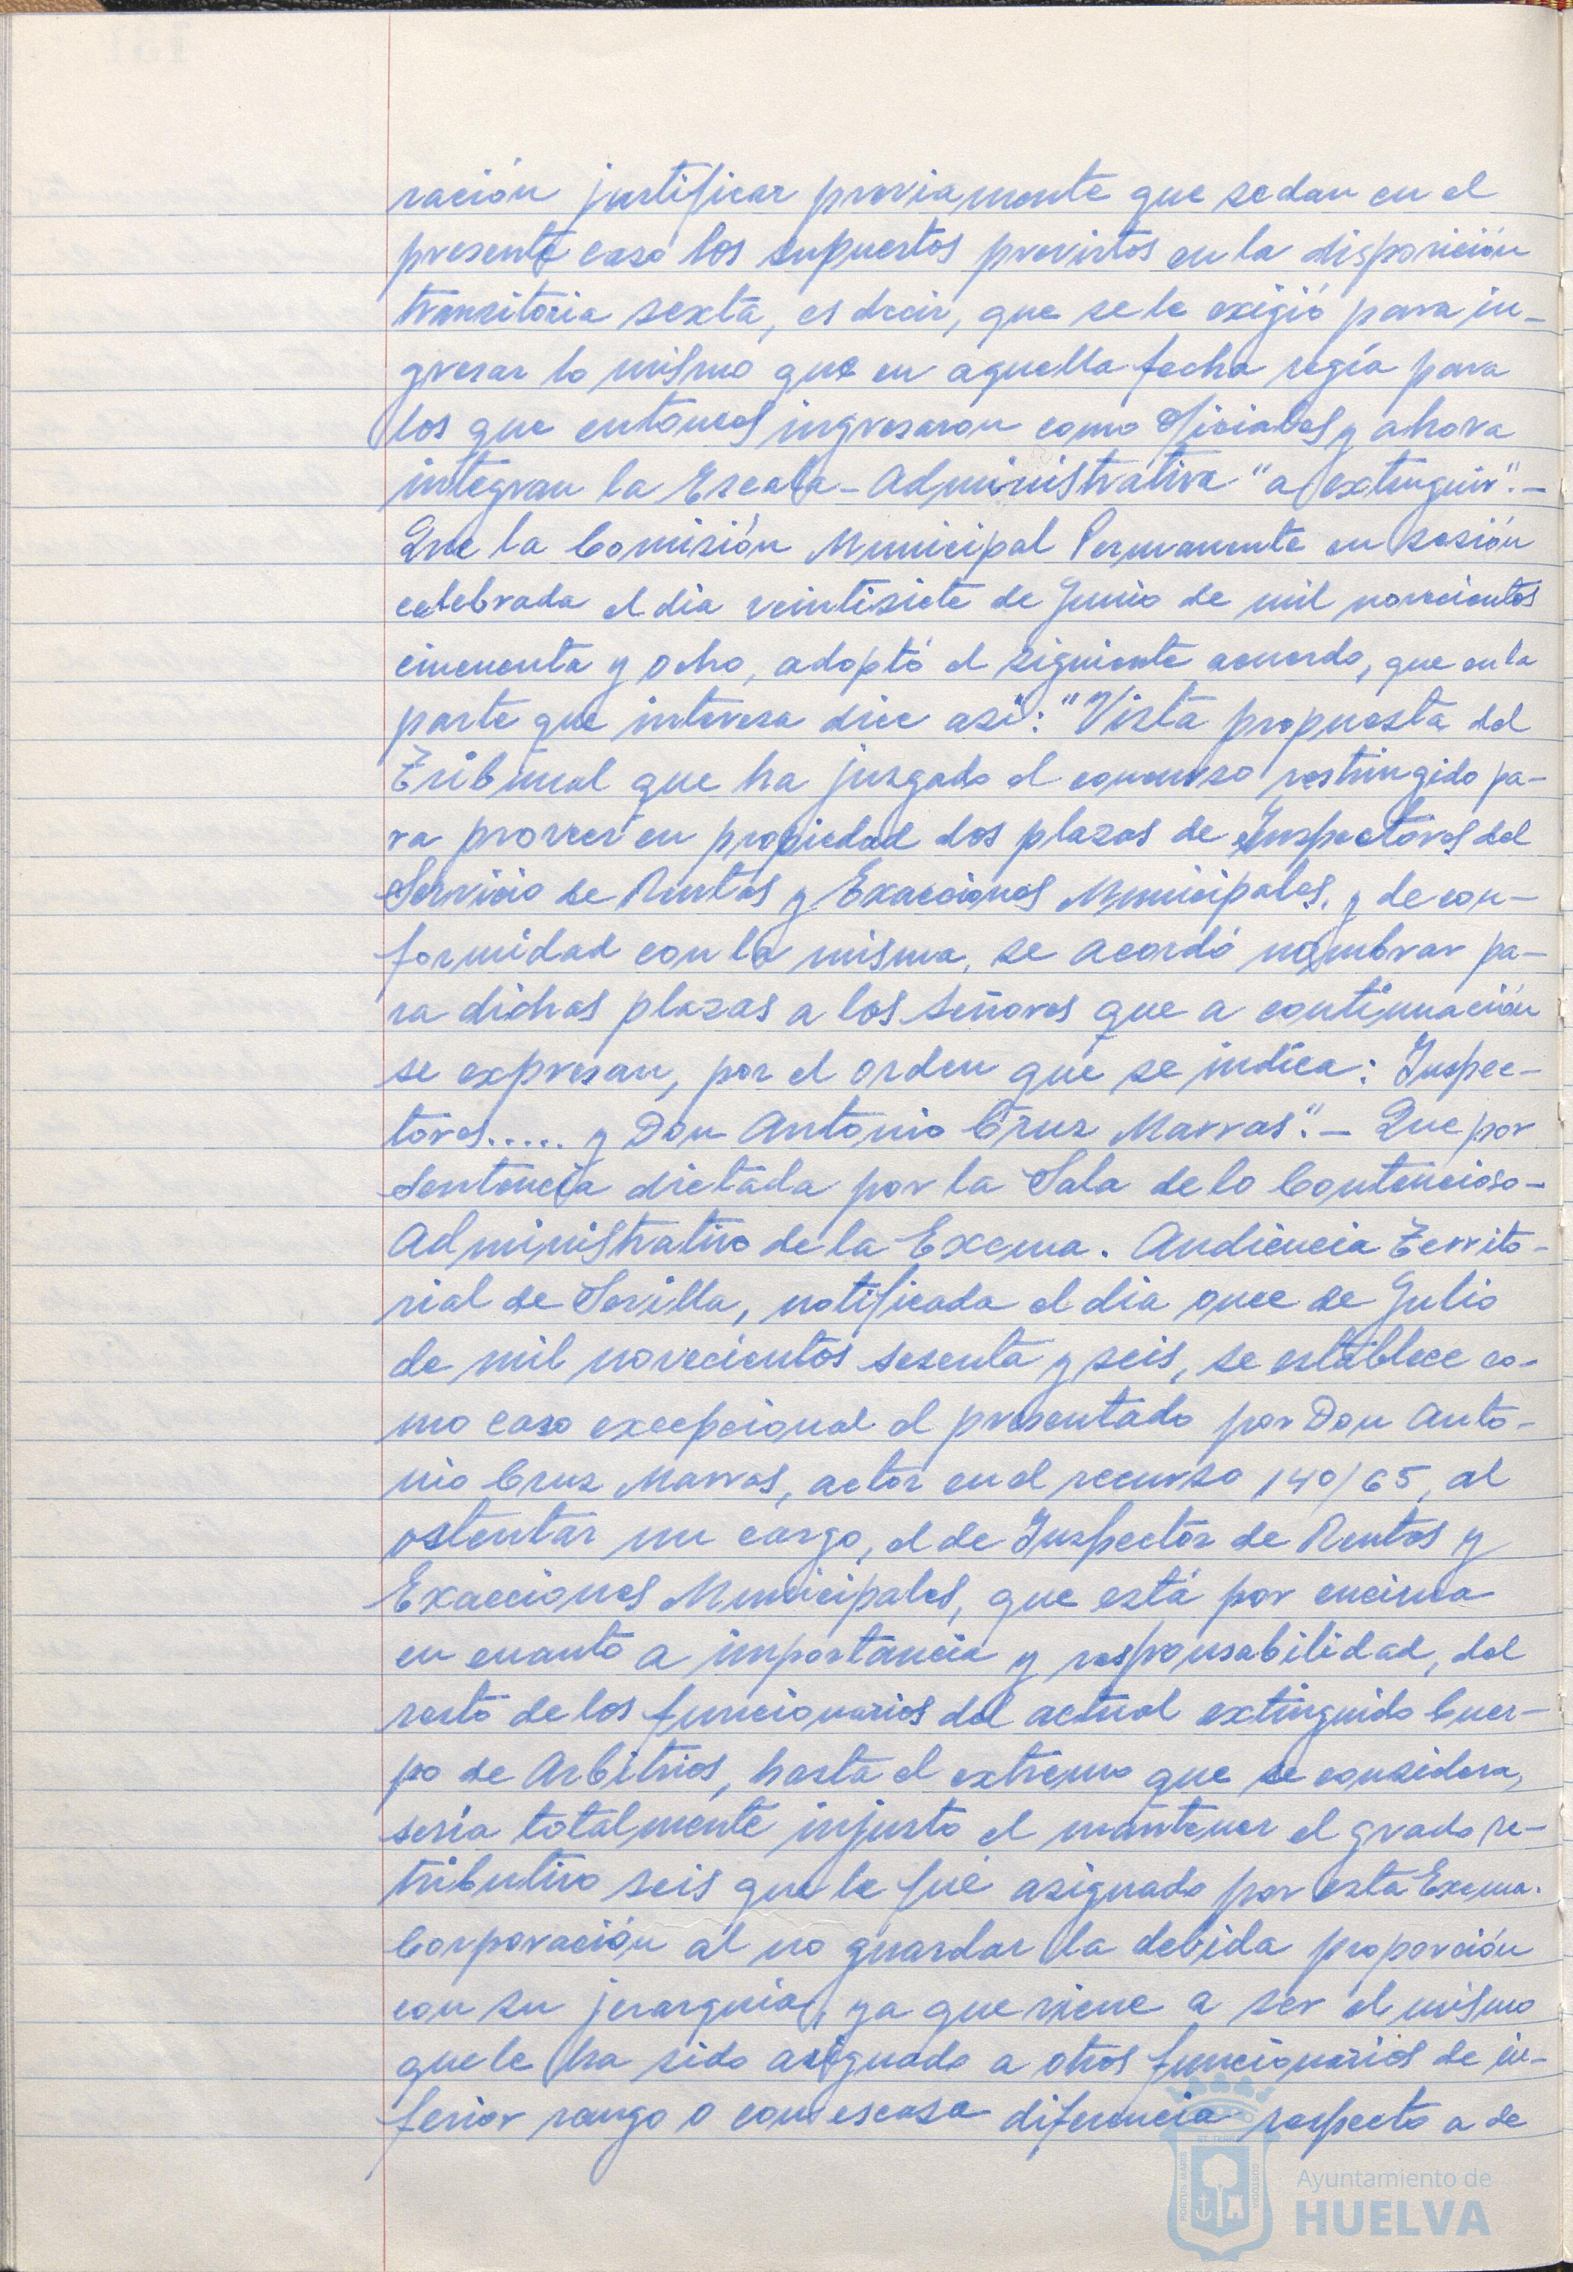 ración justificar previamente que se dan en el
presente caso los supuestos previstos en la disposición
transitoria sexta, es decir, que se le exigió para in-
gresar lo mismo que en aquella fecha regía para
los que entonces ingresaron como Oficiales y ahora
integran la Escala-Administrativa "a extinguir".-
Que la Comisión Municipal Permanente en sesión
celebrada el dia veintisiete de Junio de mil novecientos
cincuenta y ocho, adoptó el siguiente acuerdo, que en la
parte que interesa dice así: "Vista propuesta del
Tribunal que ha juzgado el concurso restringido pa-
ra proveer en propiedad dos plazas de Inspectores del
Servicio de Rentas y Exacciones Municipales, y de con-
formidad con la misma, se acordó nombrar pa-
ra dichas plazas a los señores que a continuación
se expresan, por el orden que se indica: Inspec-
tores..... y Don Antonio Cruz Marras".- Que por
Sentencia dictada por la Sala de lo Contencioso-
Administrativo de la Excma. Audiencia Territo-
rial de Sevilla, notificada el dia once de Julio
de mil novecientos sesenta y seis, se establece co-
mo caso excepcional el presentado por Don Anto-
nio Cruz Marras, actor en el recurso 140/65, al
ostentar un cargo, el de Inspector de Rentas y
Exacciones Municipales, que está por encima
en cuanto a importancia y responsabilidad, del
resto de los funcionarios del actual extinguido Cuer-
po de Arbitrios, hasta el extremo que se considera,
sería totalmente injusto el mantener el grado re-
tributivo seis que le fué asignado por esta Excma.
Corporación al no guardar la debida proporción
con su jerarquia, ya que viene a ser el mismo
que le ha sido asignado a otros funcionarios de in-
ferior rango o con escasa diferencia respecto a de
Ayuntamiento de
HUELVA